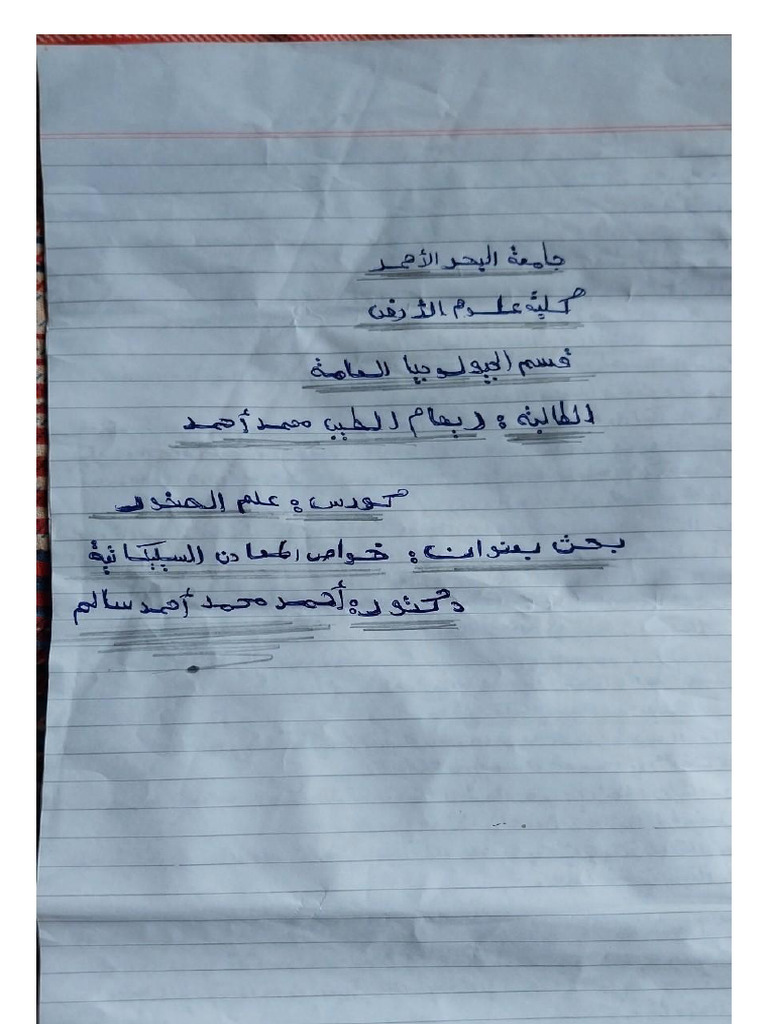 جامعة البحر الأحمر
كلية علوم الأرض
قسم الجيولوجيا العامة
الطالبة : ريهام الطيب محمد أحمد
كورس : علم الصخور
بحث بعنوان : خواص المعادن السيليكاتية
دكتور : أحمد محمد أحمد سالم